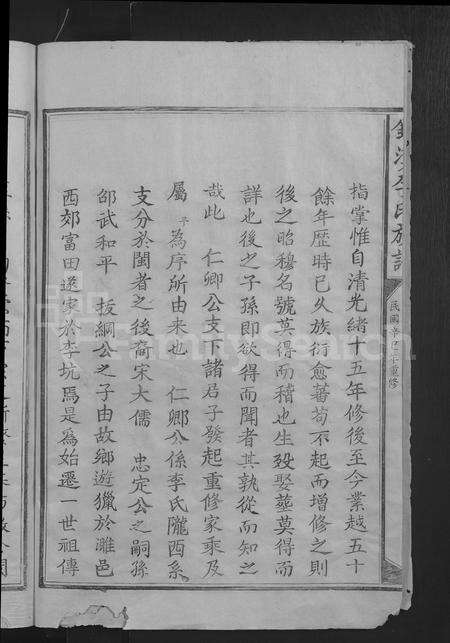 李氏族譜
民國辛巳年重修
指掌惟自清光緒十五年修後至今業越五十
餘年歷時已久族衍愈蕃苟不起而增修之則
後之昭穆名號莫得而稽也生殁娶塟莫得而
詳也後之子孫即欲得而聞者其孰從而知之
哉此 仁卿公支下諸君子發起重修家乘及
屬予為序所由來也 仁卿公係李氏隴西系
支分於閩者之後裔宋大儒 忠定公之嗣孫
邵武和平 拔綱公之子由故鄉遊獵於濉邑
西郊富田遂家於李坑焉是為始遷一世祖傳
FamilySearch